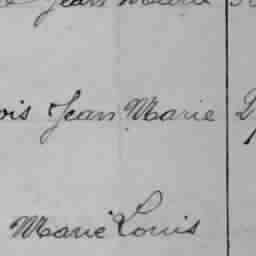 Jean Marie
ois Jean Marie
Marie Louis